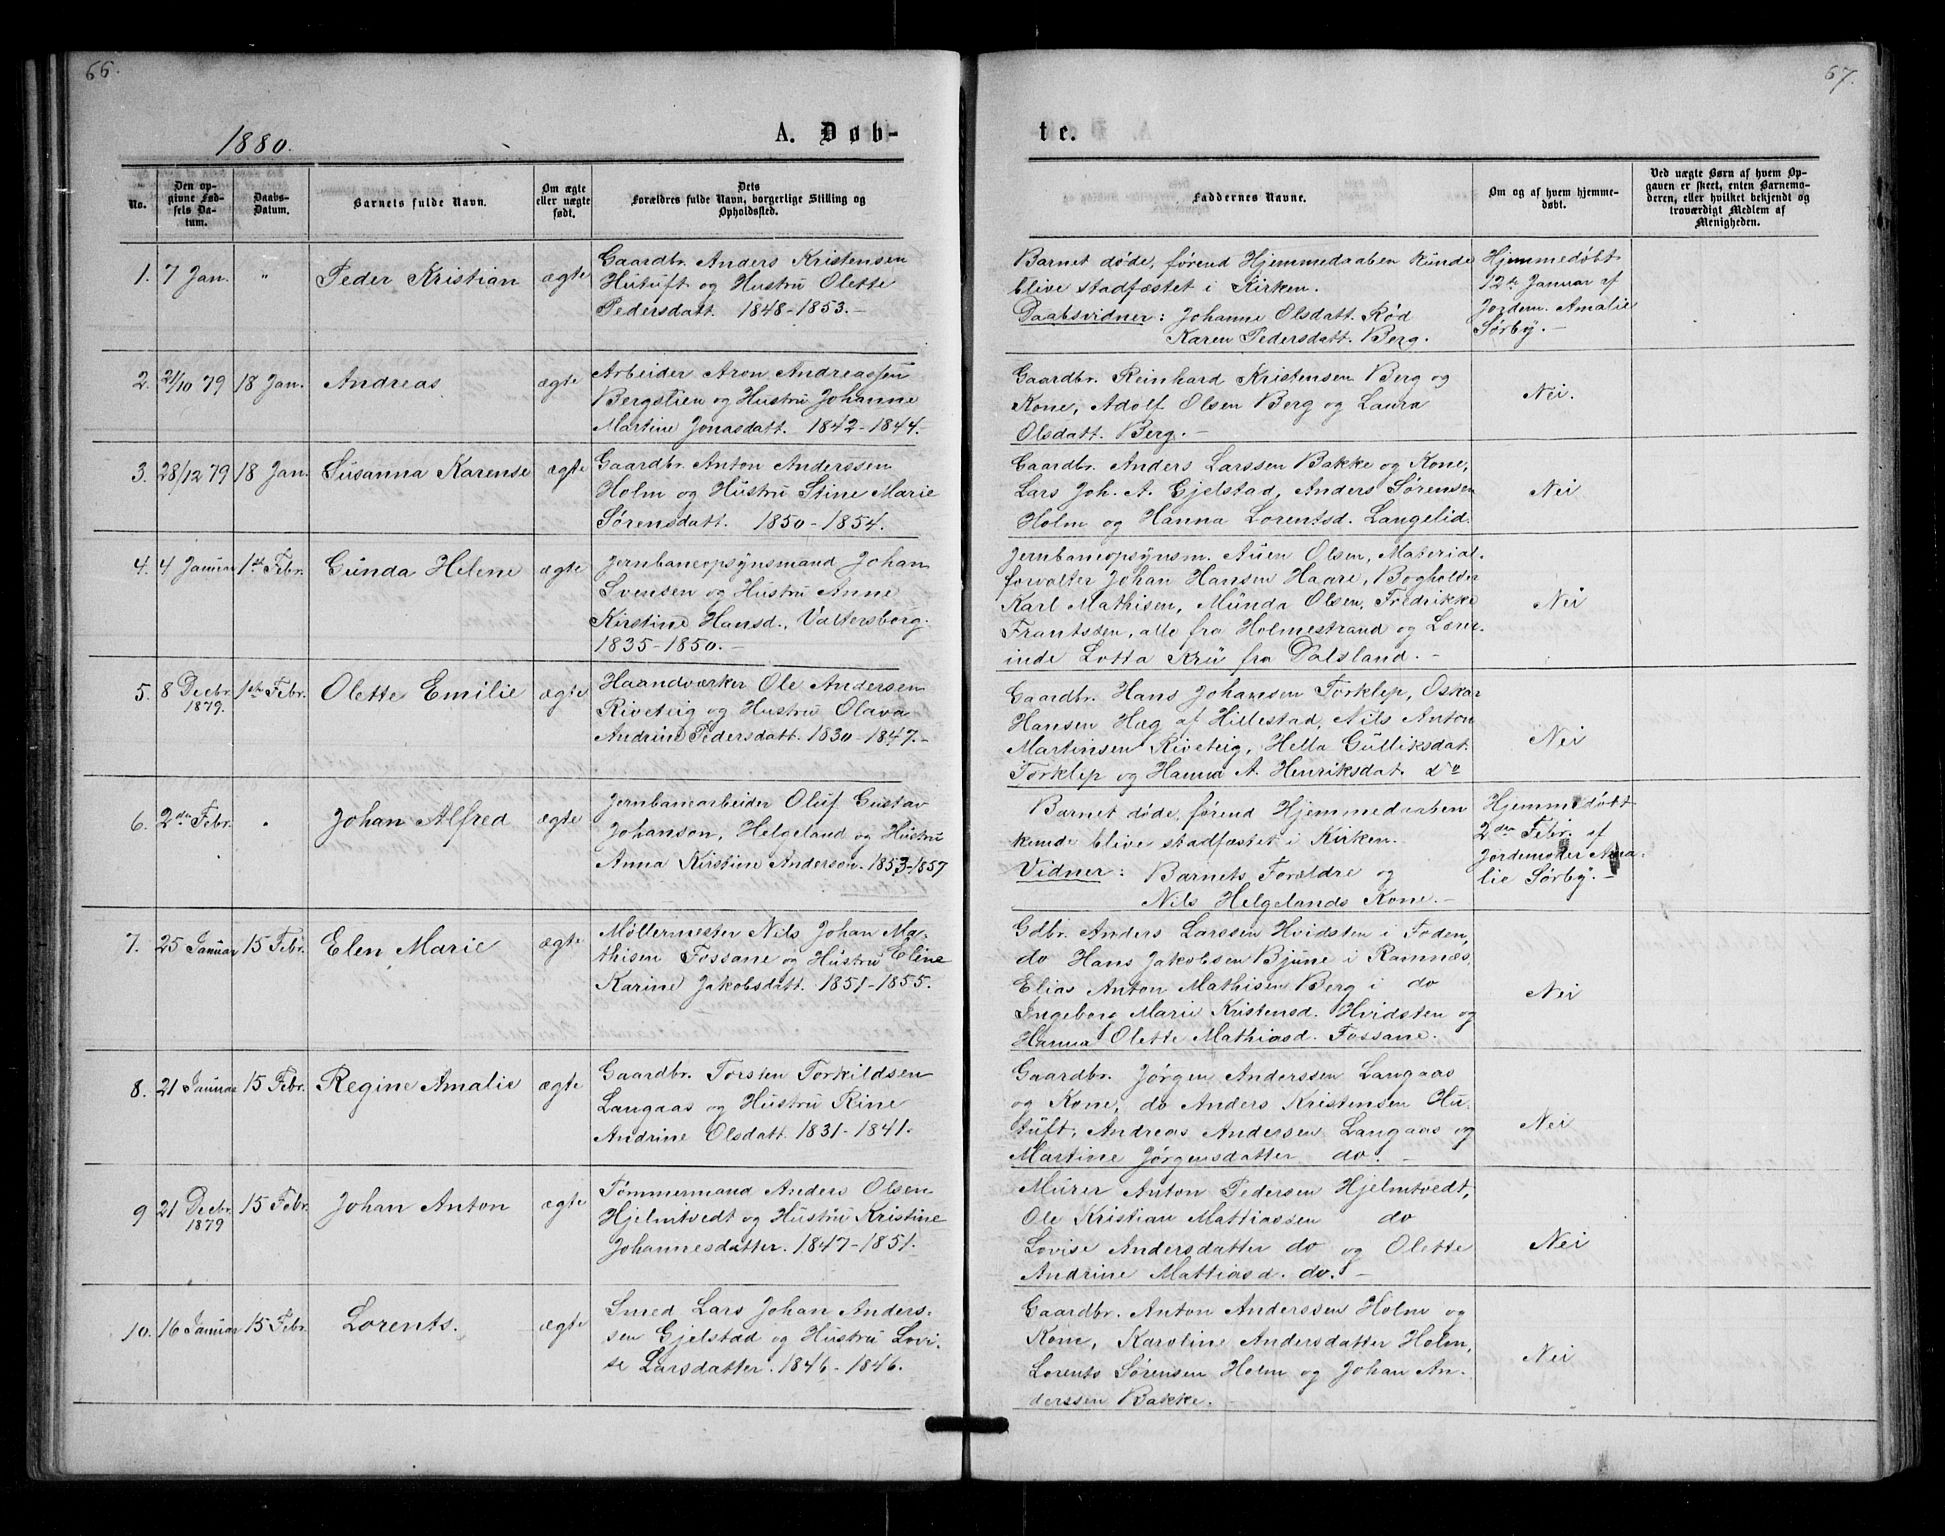 66.
67.
1880.
A. Døb-
te.
No.
Den op-
givne Fød-
sels Da-
tum.
Daabs-
Datum.
Barnets fulde Navn.
Om ægte
eller uægte
født.
Dets
Forældres fulde Navn, borgerlige Stilling og
Opholdssted.
Faddernes Navne.
Om og af hvem hjemme-
døbt.
Ved uægte Børn af hvem Op-
gaven er skeet, enten Barnemo-
deren, eller hvilket bekjendt og
troværdigt Medlem af
Menigheden.
1. 7 Jan. " Peder Kristian ægte
Gaardbr. Anders Kristensen
Hutuft og Hustru Olette
Pedersdatt. 1848-1853.-
Barnet døde, førend Hjemmedaaben kunde
blive stadfæstet i Kirken.
Daabsvidner: Johanne Olsdatt. Rød
Karen Pedersdatt. Berg.
Hjemmedøbt
12te Januar af
Jordem. Amalie
Sørby.-
2. 21/10 79 18 Jan. Andreas ægte
Arbeider Aron Andreassen
Bergslien og Hustru Johanne
Martine Jonasdatt. 1842-1844.-
Gaardbr. Reinhard Kristensen Berg og
Kone, Adolf Olsen Berg og Laura
Olsdatt. Berg.-
Nei.
3. 28/12 79 18 Jan. Susanna Karense ægte
Gaardbr. Anton Anderssen
Holm og Hustru Stine Marie
Sørensdatt. 1850-1854.
Gaardbr. Anders Larssen Bakke og Kone,
Lars Joh. A. Gjelstad, Anders Sørensen
Holm og Hanna Lorentsd. Langelid.
Nei
4. 4 Januar 1ste Febr. Gunda Helene ægte
Jernbaneopsynsmand Johan
Svensen og Hustru Anne
Kirstine Hansd., Valtersborg.
1835-1850.-
Jernbaneopsynsm. Auen Olsen, Material-
forvalter Johan Hansen Haare, Bogholder
Karl Mathisen, Munda Olsen, Fredrikke
Frantssen, alle fra Holmestrand og Lærer-
inde Lotta Kru fra Dalsland.-
Nei
5. 8 Decbr. 1879. 1ste Febr. Olette Emilie ægte
Haandværker Ole Andersen
Riveteig og Hustru Olava
Andrine Pedersdatt. 1830-1847.-
Gaardbr. Hans Johansen Torklep, Oskar
Hansen Hæg af Hillestad, Nils Anton
Martinsen Riveteig, Hella Gulliksdat.
Torklep og Hanna A. Henriksdat. do
Nei
6. 2den Febr. " Johan Alfred ægte
Jernbanearbeider Oluf Gustav
Johanson, Helgeland og Hustru
Anna Kirstine Anderson. 1853-1857
Barnet døde, førend Hjemmedaaben
kunde blive stadfæstet i Kirken.
Vidner: Barnets Forældre og
Nils Helgelands Kone.-
Hjemmedøbt
2den Febr. af
Jordemoder Ama-
lie Sørby.-
7. 25 Januar 15 Febr. Elen Marie ægte
Møllermester Nils Johan Ma-
thisen Fossane og Hustru Eline
Karine Jakobsdatt. 1851-1855.
Gdbr. Anders Larssen Hvidsten i Foden,
do Hans Jakobsen Bjune i Ramnæs,
Elias Anton Mathisen Berg i do
Ingeborg Marie Kristensd. Hvidsten og
Hanna Olette Mathiasd. Fossane.
Nei
8. 21 Januar 15 Febr. Regine Amalie ægte
Gaardbr. Torsten Torkildsen
Langaas og Hustru Rine
Andrine Olsdatt. 1831-1841.
Gaardbr. Jørgen Anderssen Langaas
og Kone, do Anders Kristensen Hu-
tuft, Andreas Andersen Langaas og
Martine Jørgensdatter do.-
Nei
9 21 Decbr. 1879 15 Febr. Johan Anton ægte
Tømmermand Anders Olsen
Hjelmtvedt og Hustru Kristine
Johannesdatter. 1847-1851.
Murer Anton Pedersen Hjelmtvedt,
Ole Kristian Mattiassen do
Lovise Andersdatter do og Olette
Andrine Mattiasd. do.-
Nei
10. 16 Januar 15 Febr. Lorents. ægte
Smed Lars Johan Anders-
sen Gjelstad og Hustru Lovi-
se Larsdatter. 1846-1846.
Gaardbr. Anton Anderssen Holm og
Kone, Karoline Andersdatter Holm,
Lorents Sørensen Holm og Johan An-
derssen Bakke.-
Nei